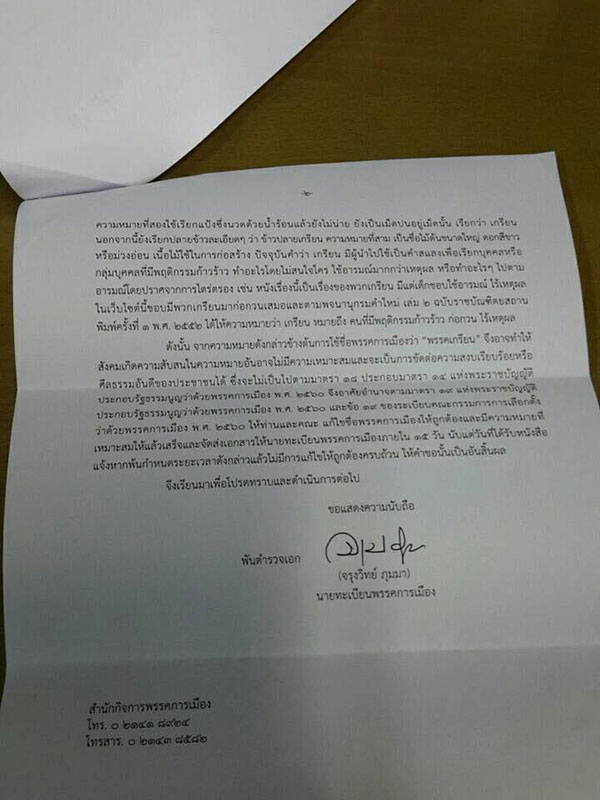 -๒-
ความหมายที่สองใช้เรียกแป้งซึ่งนวดด้วยน้ำร้อนแล้วยังไม่น่าย ยังเป็นเม็ดปนอยู่เม็ดนั้น เรียกว่า เกรียน
นอกจากนี้ยังเรียกปลายข้าวละเอียดๆ ว่า ข้าวปลายเกรียน ความหมายที่สาม เป็นชื่อไม้ต้นขนาดใหญ่ ดอกสีขาว
หรือม่วงอ่อน เนื้อไม้ใช้ในการก่อสร้าง ปัจจุบันคำว่า เกรียน มีผู้นำไปใช้เป็นคำสแลงเพื่อเรียกบุคคลหรือ
กลุ่มบุคคลที่มีพฤติกรรมก้าวร้าว ทำอะไรโดยไม่สนใจใคร ใช้อารมณ์มากกว่าเหตุผล หรือทำอะไรๆ ไปตาม
อารมณ์โดยปราศจากการไตร่ตรอง เช่น หนังเรื่องนี้เป็นเรื่องของพวกเกรียน มีแต่เด็กชอบใช้อารมณ์ ไร้เหตุผล
ในเว็บไซต์นี้ชอบมีพวกเกรียนมาก่อกวนเสมอและตามพจนานุกรมคำใหม่ เล่ม ๒ ฉบับราชบัณฑิตยสถาน
พิมพ์ครั้งที่ ๑ พ.ศ. ๒๕๕๒ ได้ให้ความหมายว่า เกรียน หมายถึง คนที่มีพฤติกรรมก้าวร้าว ก่อกวน ไร้เหตุผล
ดังนั้น จากความหมายดังกล่าวข้างต้นการใช้ชื่อพรรคการเมืองว่า “พรรคเกรียน” จึงอาจทำให้
สังคมเกิดความสับสนในความหมายอันอาจไม่มีความเหมาะสมและจะเป็นการขัดต่อความสงบเรียบร้อยหรือ
ศีลธรรมอันดีของประชาชนได้ ซึ่งจะไม่เป็นไปตามมาตรา ๑๘ ประกอบมาตรา ๑๔ แห่งพระราชบัญญัติ
ประกอบรัฐธรรมนูญว่าด้วยพรรคการเมือง พ.ศ. ๒๕๖๐ จึงอาศัยอำนาจตามมาตรา ๑๙ แห่งพระราชบัญญัติ
ประกอบรัฐธรรมนูญว่าด้วยพรรคการเมือง พ.ศ. ๒๕๖๐ และข้อ ๑๙ ของระเบียบคณะกรรมการการเลือกตั้ง
ว่าด้วยพรรคการเมือง พ.ศ. ๒๕๖๐ ให้ท่านและคณะ แก้ไขชื่อพรรคการเมืองให้ถูกต้องและมีความหมายที่
เหมาะสมให้แล้วเสร็จและจัดส่งเอกสารให้นายทะเบียนพรรคการเมืองภายใน ๑๕ วัน นับแต่วันที่ได้รับหนังสือ
แจ้งหากพ้นกำหนดระยะเวลาดังกล่าวแล้วไม่มีการแก้ไขให้ถูกต้องครบถ้วน ให้คำขอนั้นเป็นอันสิ้นผล
จึงเรียนมาเพื่อโปรดทราบและดำเนินการต่อไป
ขอแสดงความนับถือ
พันตำรวจเอก
(จรุงวิทย์ ภุมมา)
นายทะเบียนพรรคการเมือง
สำนักกิจการพรรคการเมือง
โทร. ๐ ๒๑๔๑ ๘๙๒๔
โทรสาร. ๐ ๒๑๔๓ ๘๕๘๒